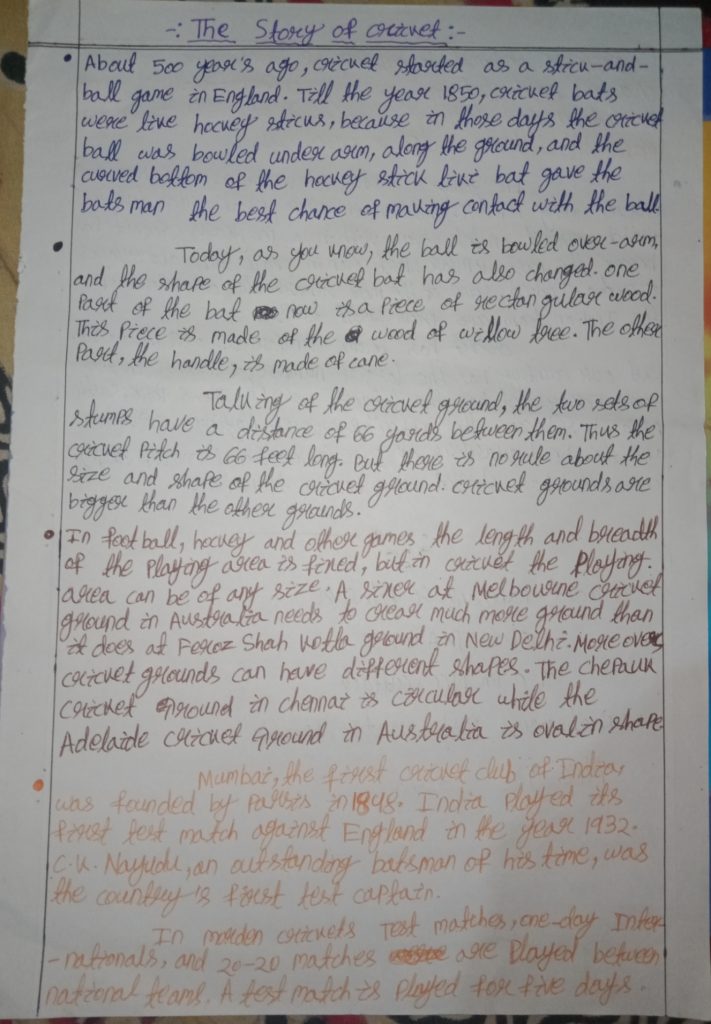 -: The Story of cricket :-
About 500 year's ago, cricket started as a stick-and-
ball game in England. Till the year 1850, cricket bats
were like hockey sticks, because in those days the cricket
ball was bowled under arm, along the ground, and the
curved bottom of the hockey stick like bat gave the
bats man the best chance of making contact with the ball.
Today, as you know, the ball is bowled over-arm,
and the shape of the cricket bat has also changed. one
Part of the bat now is a Piece of rectangular wood.
This Piece is made of the wood of willow tree. The other
Part, the handle, is made of cane.
Talking of the cricket ground, the two sets of
stumps have a distance of 66 yards between them. Thus the
cricket Pitch is 66 feet long. But there is no rule about the
size and shape of the cricket ground. cricket grounds are
bigger than the other grounds.
In football, hockey and other games the length and breadth
of the Playing area is fixed, but in cricket the Playing.
area can be of any size. A sixer at Melbourne cricket
ground in Australia needs to crear much more ground than
it does at Feroz Shah Kotla ground in New Delhi. More over,
cricket grounds can have different shapes. The chepauk
cricket ground in chennai is circular while the
Adelaide cricket ground in Australia is oval in shape.
Mumbai, the first cricket club of India,
was founded by Parsis in 1848. India Played its
first test match against England in the year 1932.
C.K. Nayudu, an outstanding batsman of his time, was
the country's first test captain.
In morden crickets Test matches, one-day Inter
-nationals, and 20-20 matches are Played between
national teams. A test match is Played for five days.